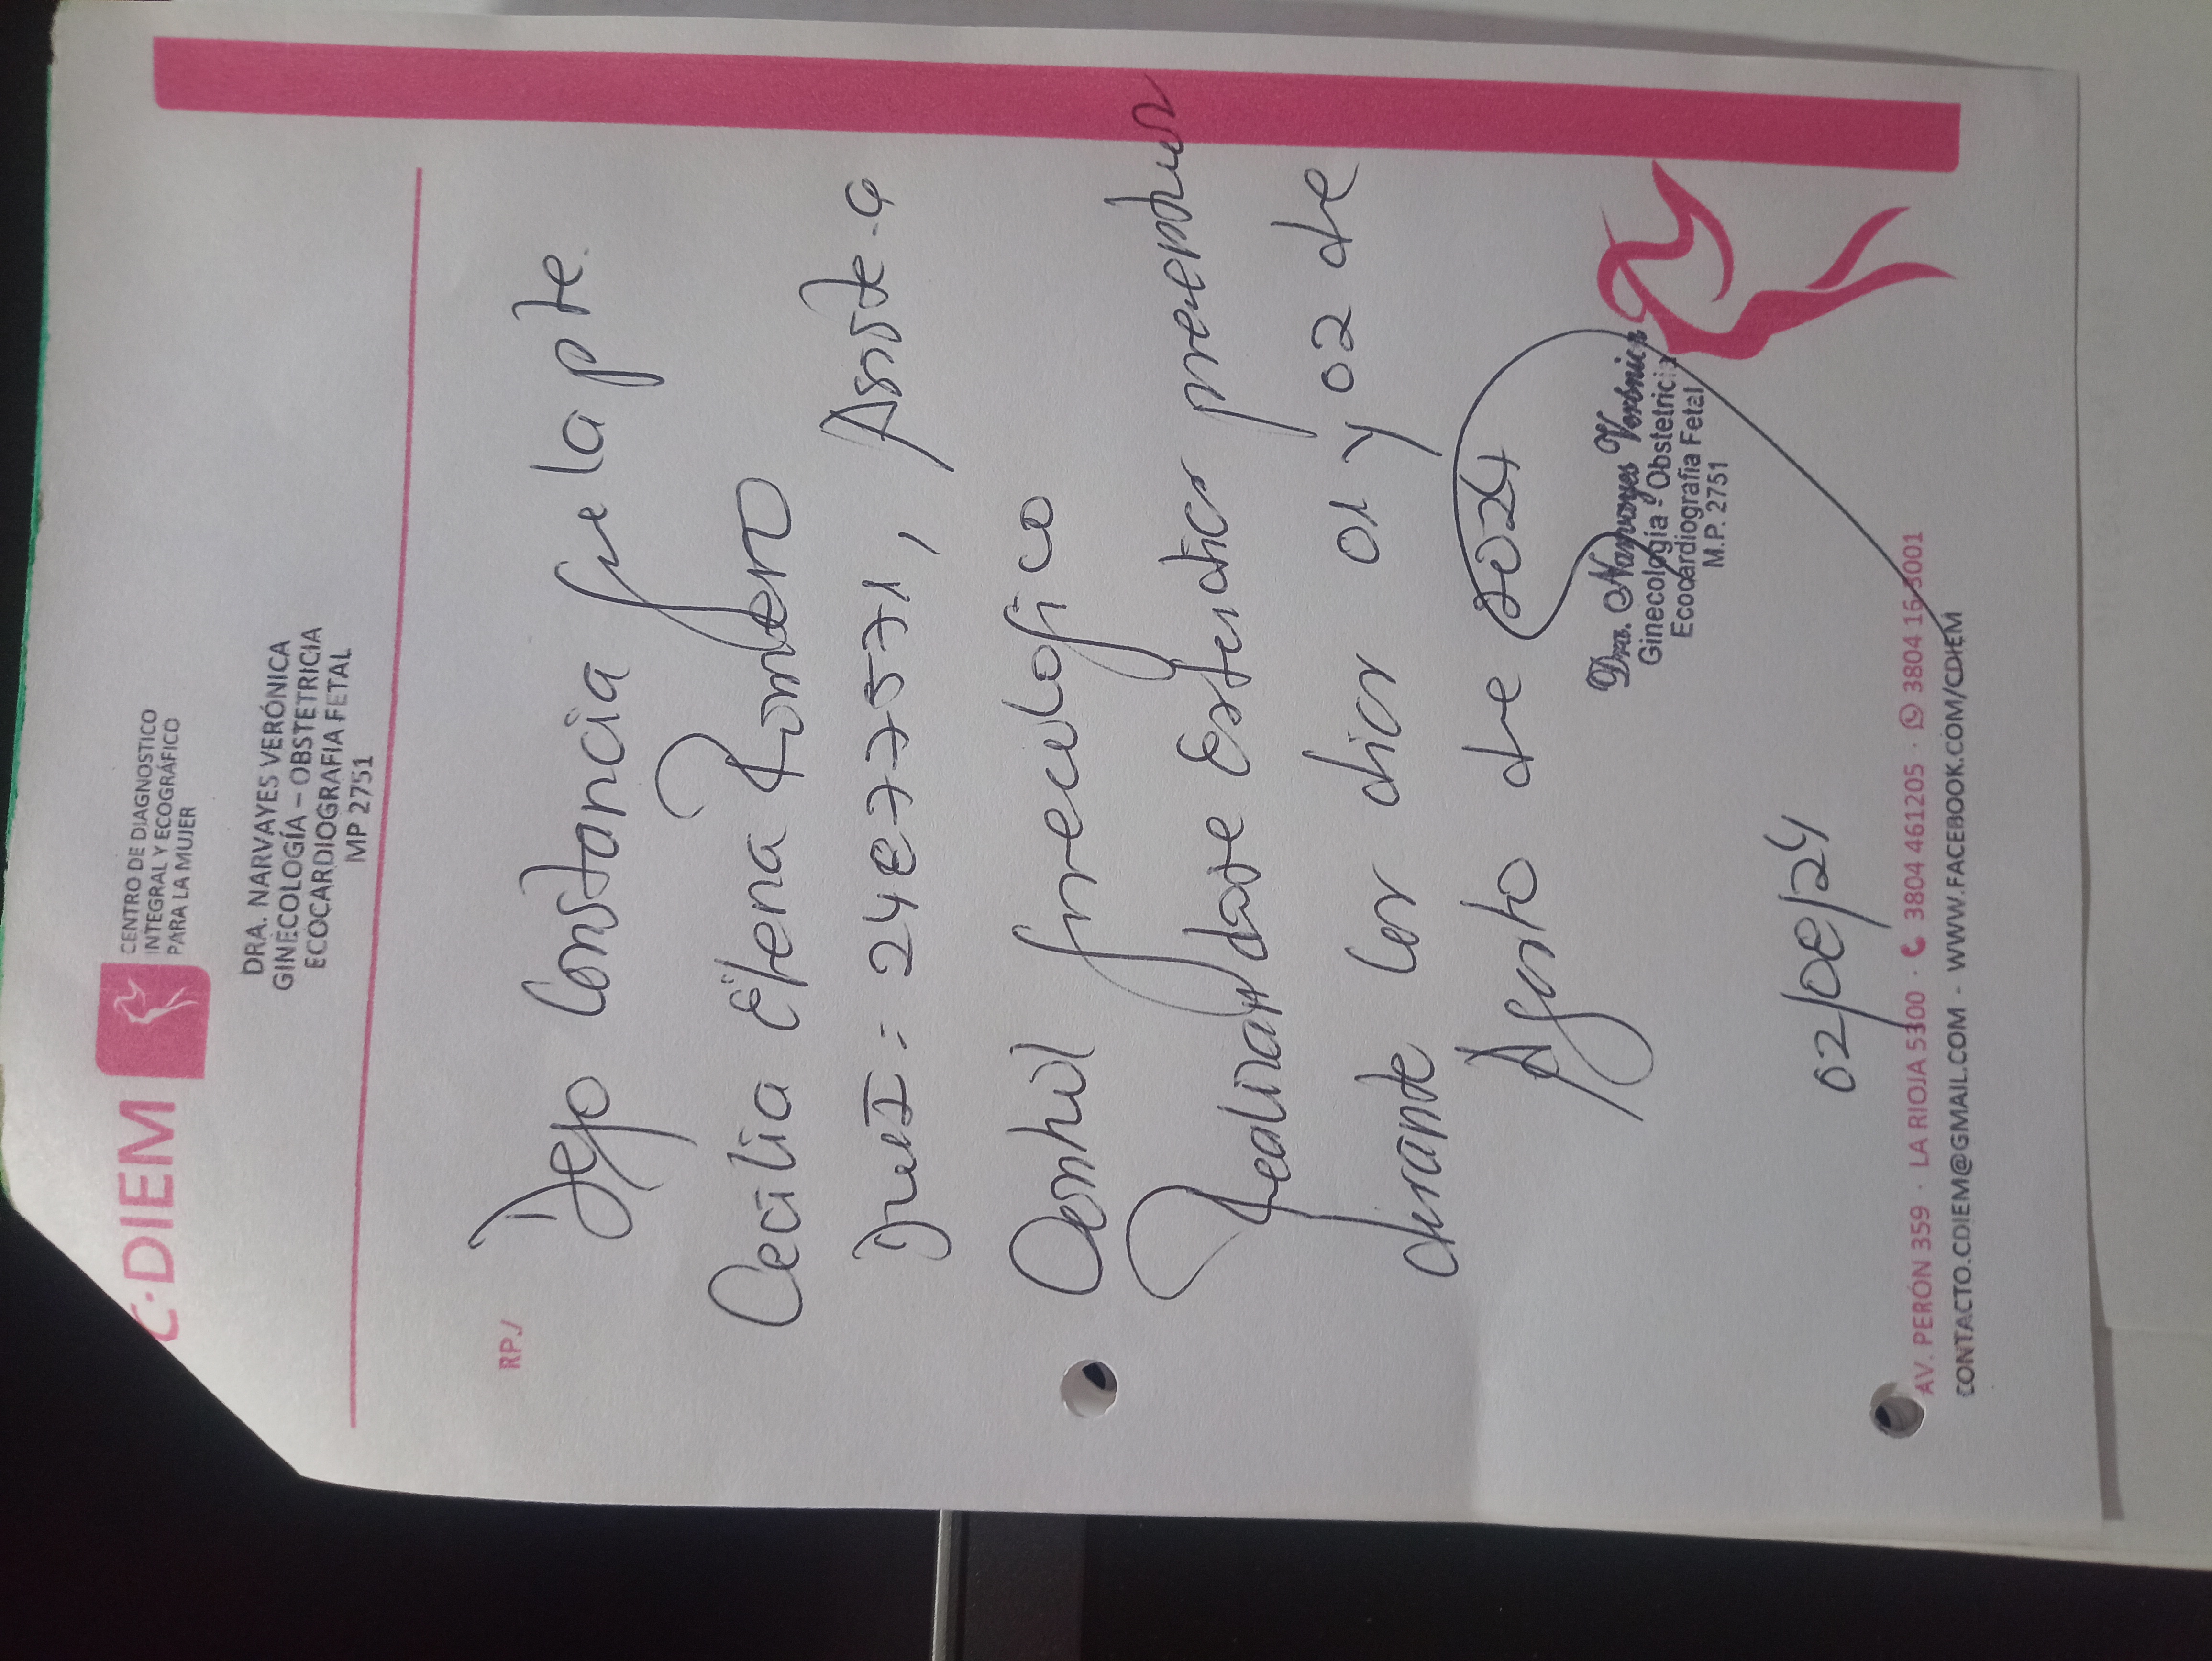 C·DIEM
CENTRO DE DIAGNOSTICO
INTEGRAL Y ECOGRÁFICO
PARA LA MUJER
DRA. NARVAYES VERÓNICA
GINECOLOGÍA – OBSTETRICIA
ECOCARDIOGRAFIA FETAL
MP 2751
RP./
Dejo Constancia que la pte.
Cecilia Elena Romero
DNI: 24877571, Asiste a
Control ginecologico
Realizandose Estudios
durante los dias 01 y 02 de
Agosto de 2024
Dra. Narvayes Verónica
Ginecología - Obstetricia
Ecocardiografía Fetal
M.P. 2751
02/08/24
AV. PERÓN 359 · LA RIOJA 5300 · 3804 461205 · 3804 163001
CONTACTO.CDIEM@GMAIL.COM - WWW.FACEBOOK.COM/CDIEM